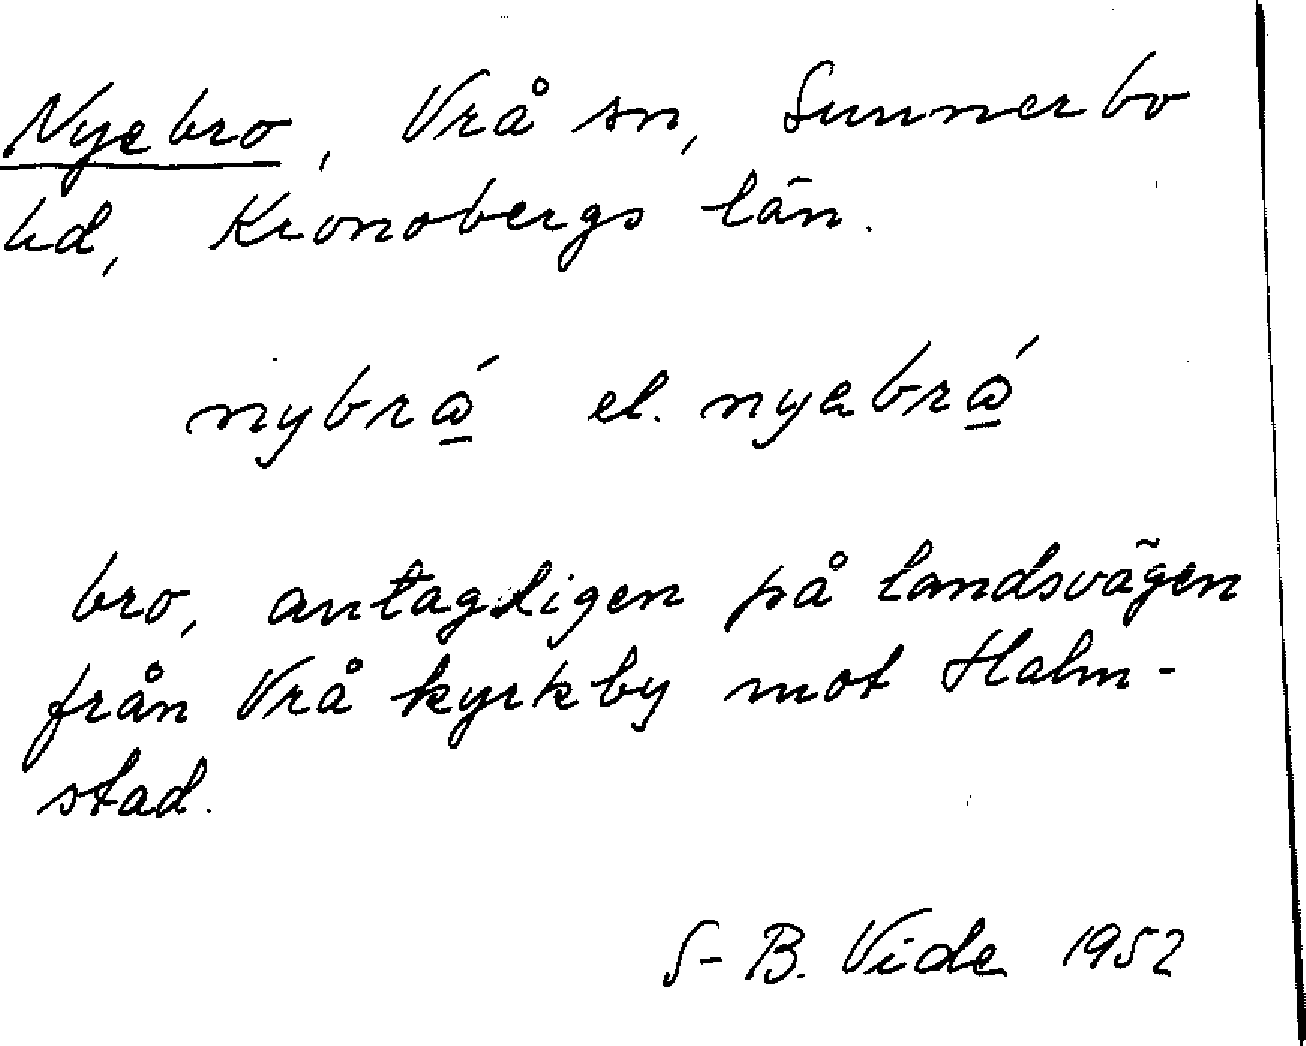 Nyebro, Vrå sn, Sunnerbo
hd, Kronobergs län.
nybrá̱ el. nyabrá̱
bro, antagligen på landsvägen
från Vrå kyrkby mot Halm-
stad.
S-B. Vide 1952